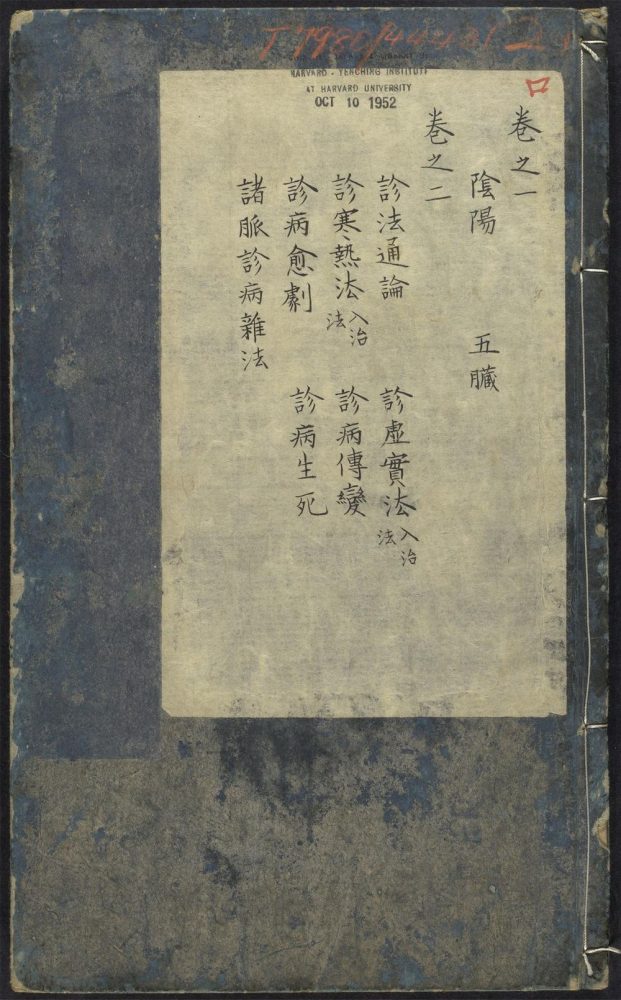 HARVARD - YENCHING INSTITUTE
AT HARVARD UNIVERSITY
OCT 10 1952
卷之一
陰陽 五臟
卷之二
診法通論 診虛實法入治法
診寒熱法入治法 診病傳變
診病愈劇 診病生死
諸脈診病雜法